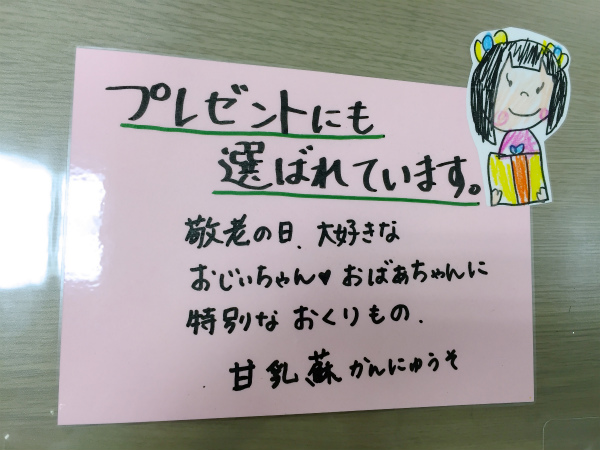 プレゼントにも
選ばれています。
敬老の日、大好きな
おじいちゃん♥おばあちゃんに
特別なおくりもの.
甘乳蘇かんにゅうそ